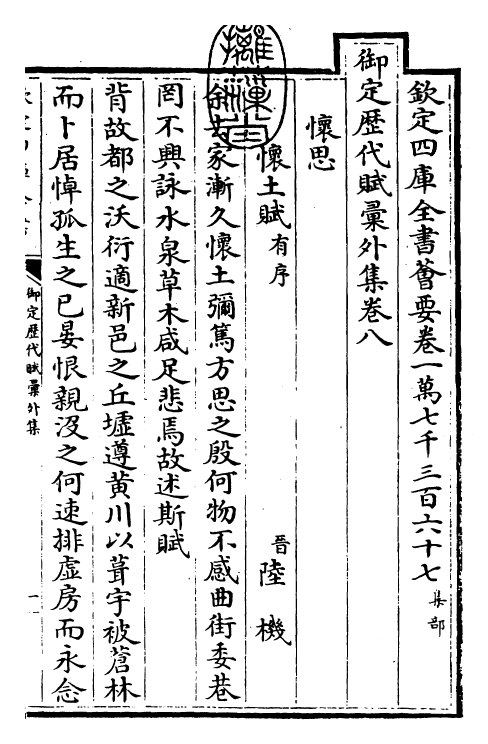 欽定四庫全書薈要卷一萬七千三百六十七集部
御定歴代賦彙外集卷八
懷思
懷土賦有序 晉陸機
余去家漸久懷土彌篤方思之殷何物不感曲街委巷
罔不興詠水泉草木咸足悲焉故述斯賦
背故都之沃衍適新邑之丘墟遵黄川以葺宇被蒼林
而卜居悼孤生之已晏恨親沒之何速排虛房而永念
御定歴代賦彙外集
一